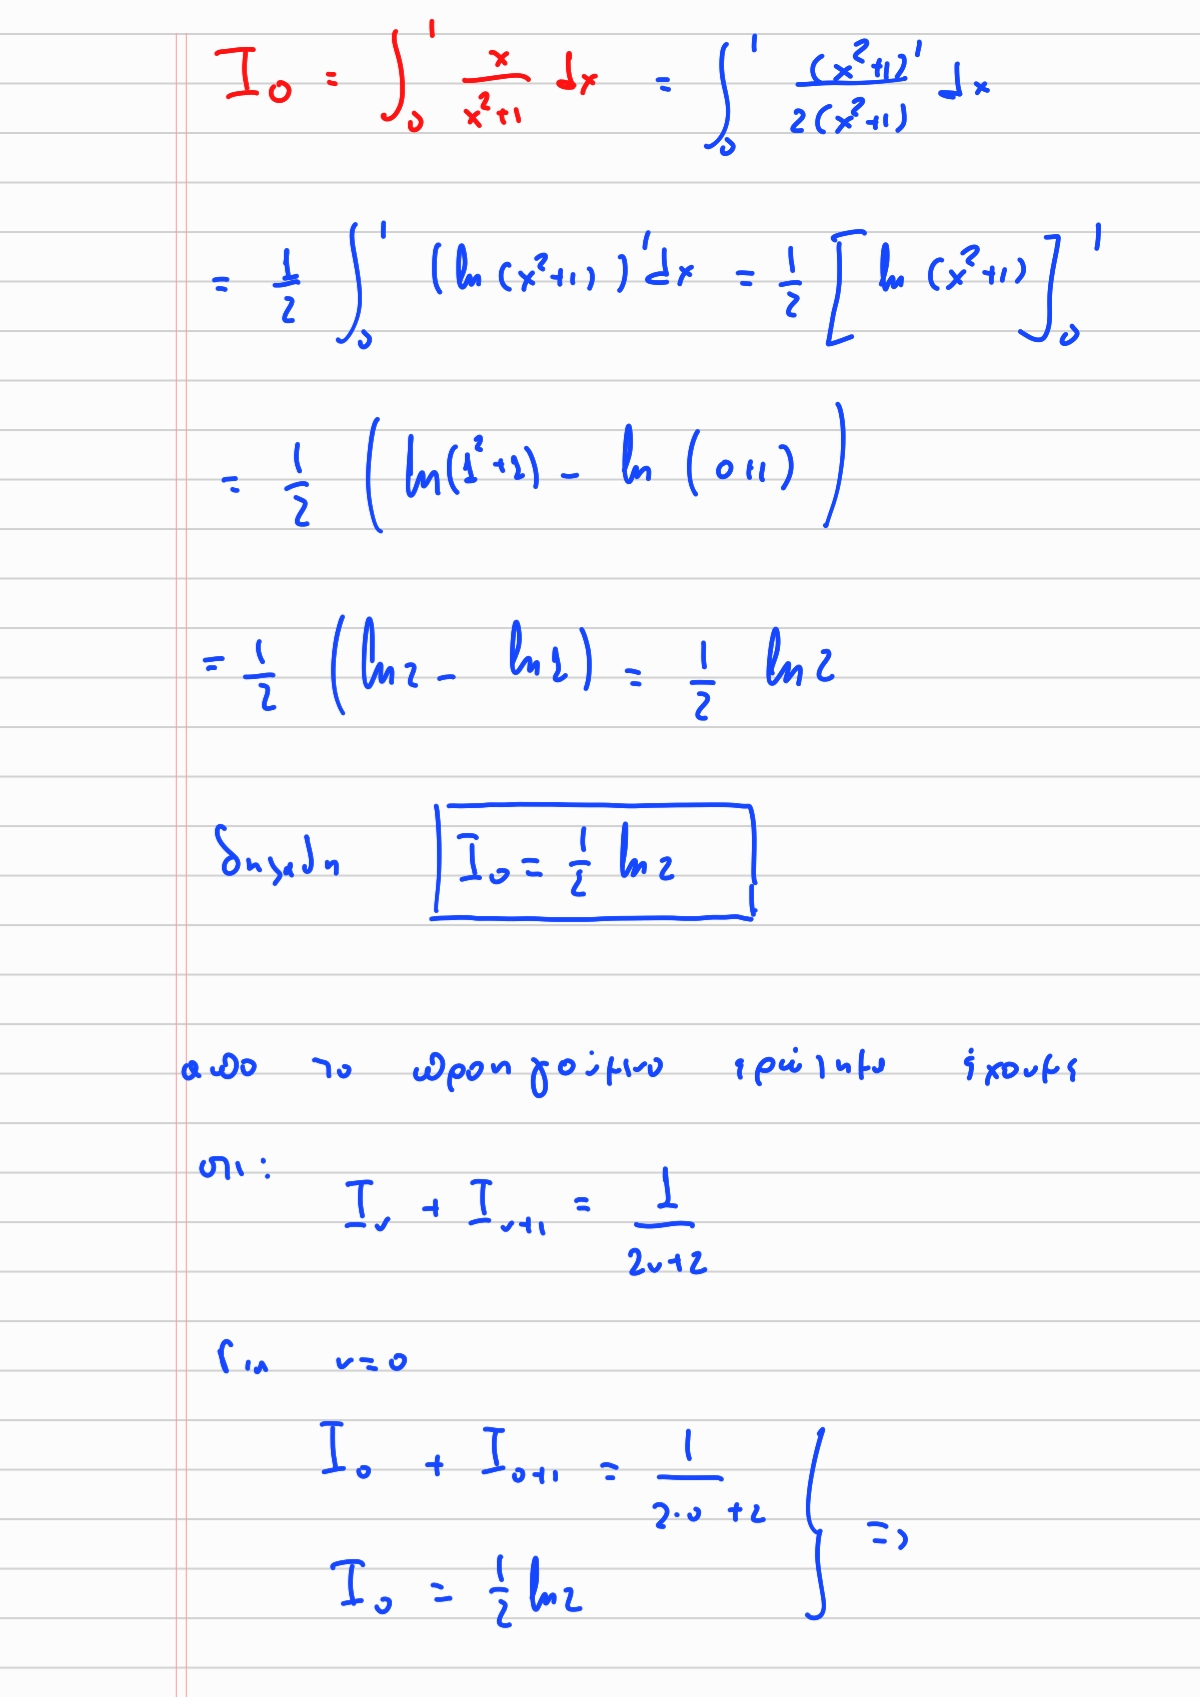 I₀ = ∫₀¹ x/(x²+1) dx = ∫₀¹ (x²+1)'/(2(x²+1)) dx
= 1/2 ∫₀¹ (ln(x²+1))' dx = 1/2 [ln(x²+1)]₀¹
= 1/2 (ln(1²+1) - ln(0+1))
= 1/2 (ln2 - ln1) = 1/2 ln2
δηλαδή I₀ = 1/2 ln2
από το προηγούμενο ερώτημα έχουμε
οτι:
Iᵥ + Iᵥ₊₁ = 1/(2ν+2)
Για ν=0
I₀ + I₀₊₁ = 1/(2·0+2) } =>
I₀ = 1/2 ln2